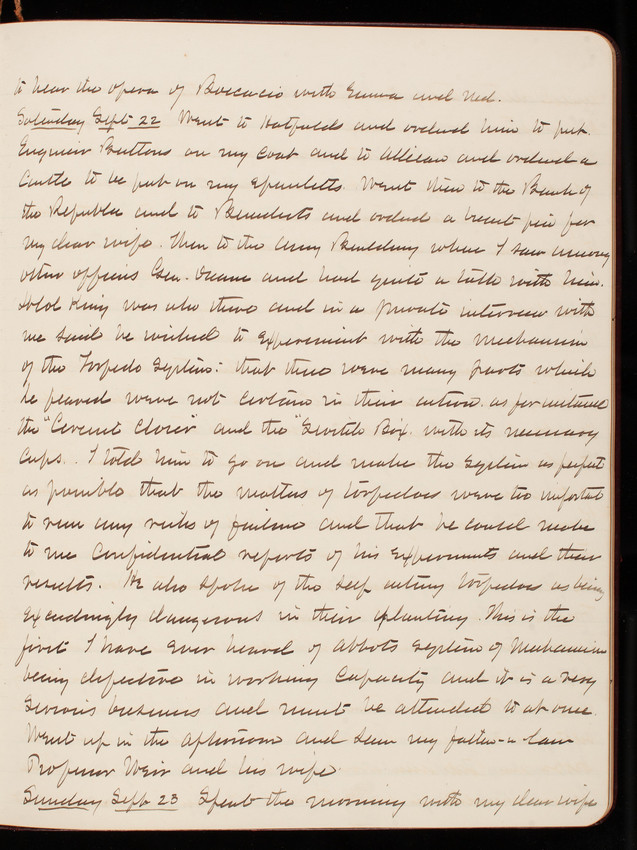 to hear the opera of Boccacio with Emma and Ned.
Saturday Sept 22 Went to Hatfields and ordered him to put
Engineer Buttons on my coat and to Allisan and ordered a
Castle to be put on my Epauletts. Went then to the Bank of
the Republic and to Benedicts and ordered a breast pin for
my dear wife. Then to the Army Building where I saw among
other officers Gen. Duane and had quite a talk with him.
King was also there and in a private interview with
me said he wished to experiment with the mechanism
of the Torpedo System: that there were many parts which
he feared were not certain in their action. as for instance
the "Circuit Closer" and the "Switch Box. with its necessary
Cups. I told him to go on and make the System as perfect
as possible that the matters of torpedoes were too important
to run any risks of failure and that he could make
to me Confidential reports of his Experiments and their
results. He also spoke of the self acting torpedoes as being
exceedingly dangerous in their planting. This is the
first I have ever heard of Abbots System of Mechanism
being defective in working Capacity and it is a very
Serious business and must be attended to at once.
Went up in the afternoon and saw my father-n-law
Professor Weir and his wife.
Sunday Sept 23 Spent the morning with my dear wife